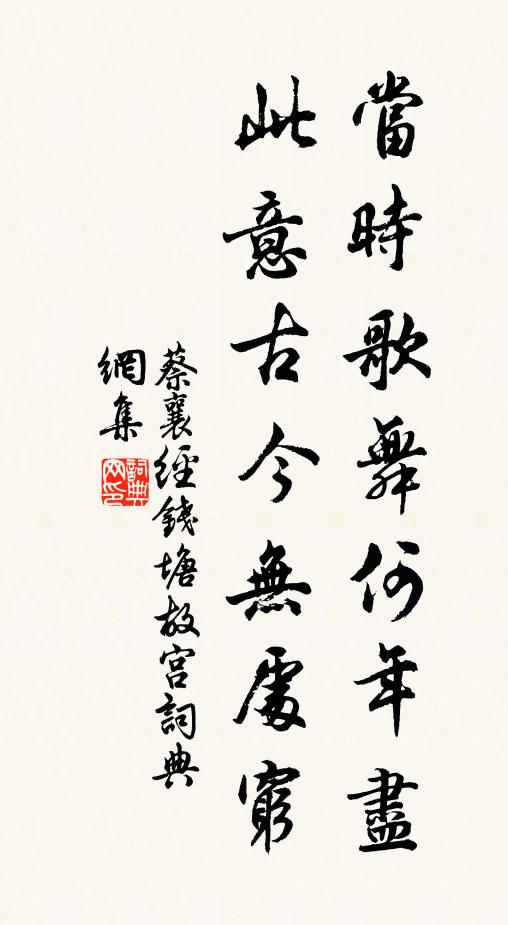 當時歌舞何年盡
此意古今無處窮
蔡襄經錢塘故宮詞典
網集
詞典
网印